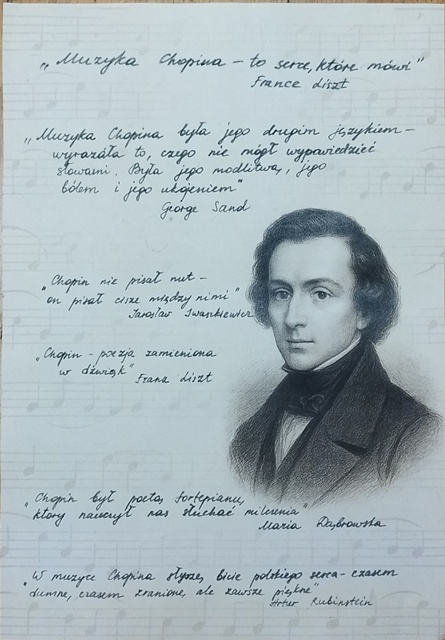 „Muzyka Chopina – to serce, które mówi"
France Liszt
„Muzyka Chopina była jego drugim językiem –
wyrażała to, czego nie mógł wypowiedzieć
słowami. Była jego modlitwą, jego
bólem i jego ukojeniem"
George Sand
„Chopin nie pisał nut –
on pisał ciszę między nimi"
Jarosław Iwaszkiewicz
„Chopin – poezja zamieniona
w dźwięk"
Franz Liszt
„Chopin był poetą fortepianu,
który nauczył nas słuchać milczenia"
Maria Dąbrowska
„W muzyce Chopina słyszę bicie polskiego serca – czasem
dumne, czasem zranione, ale zawsze piękne"
Artur Rubinstein